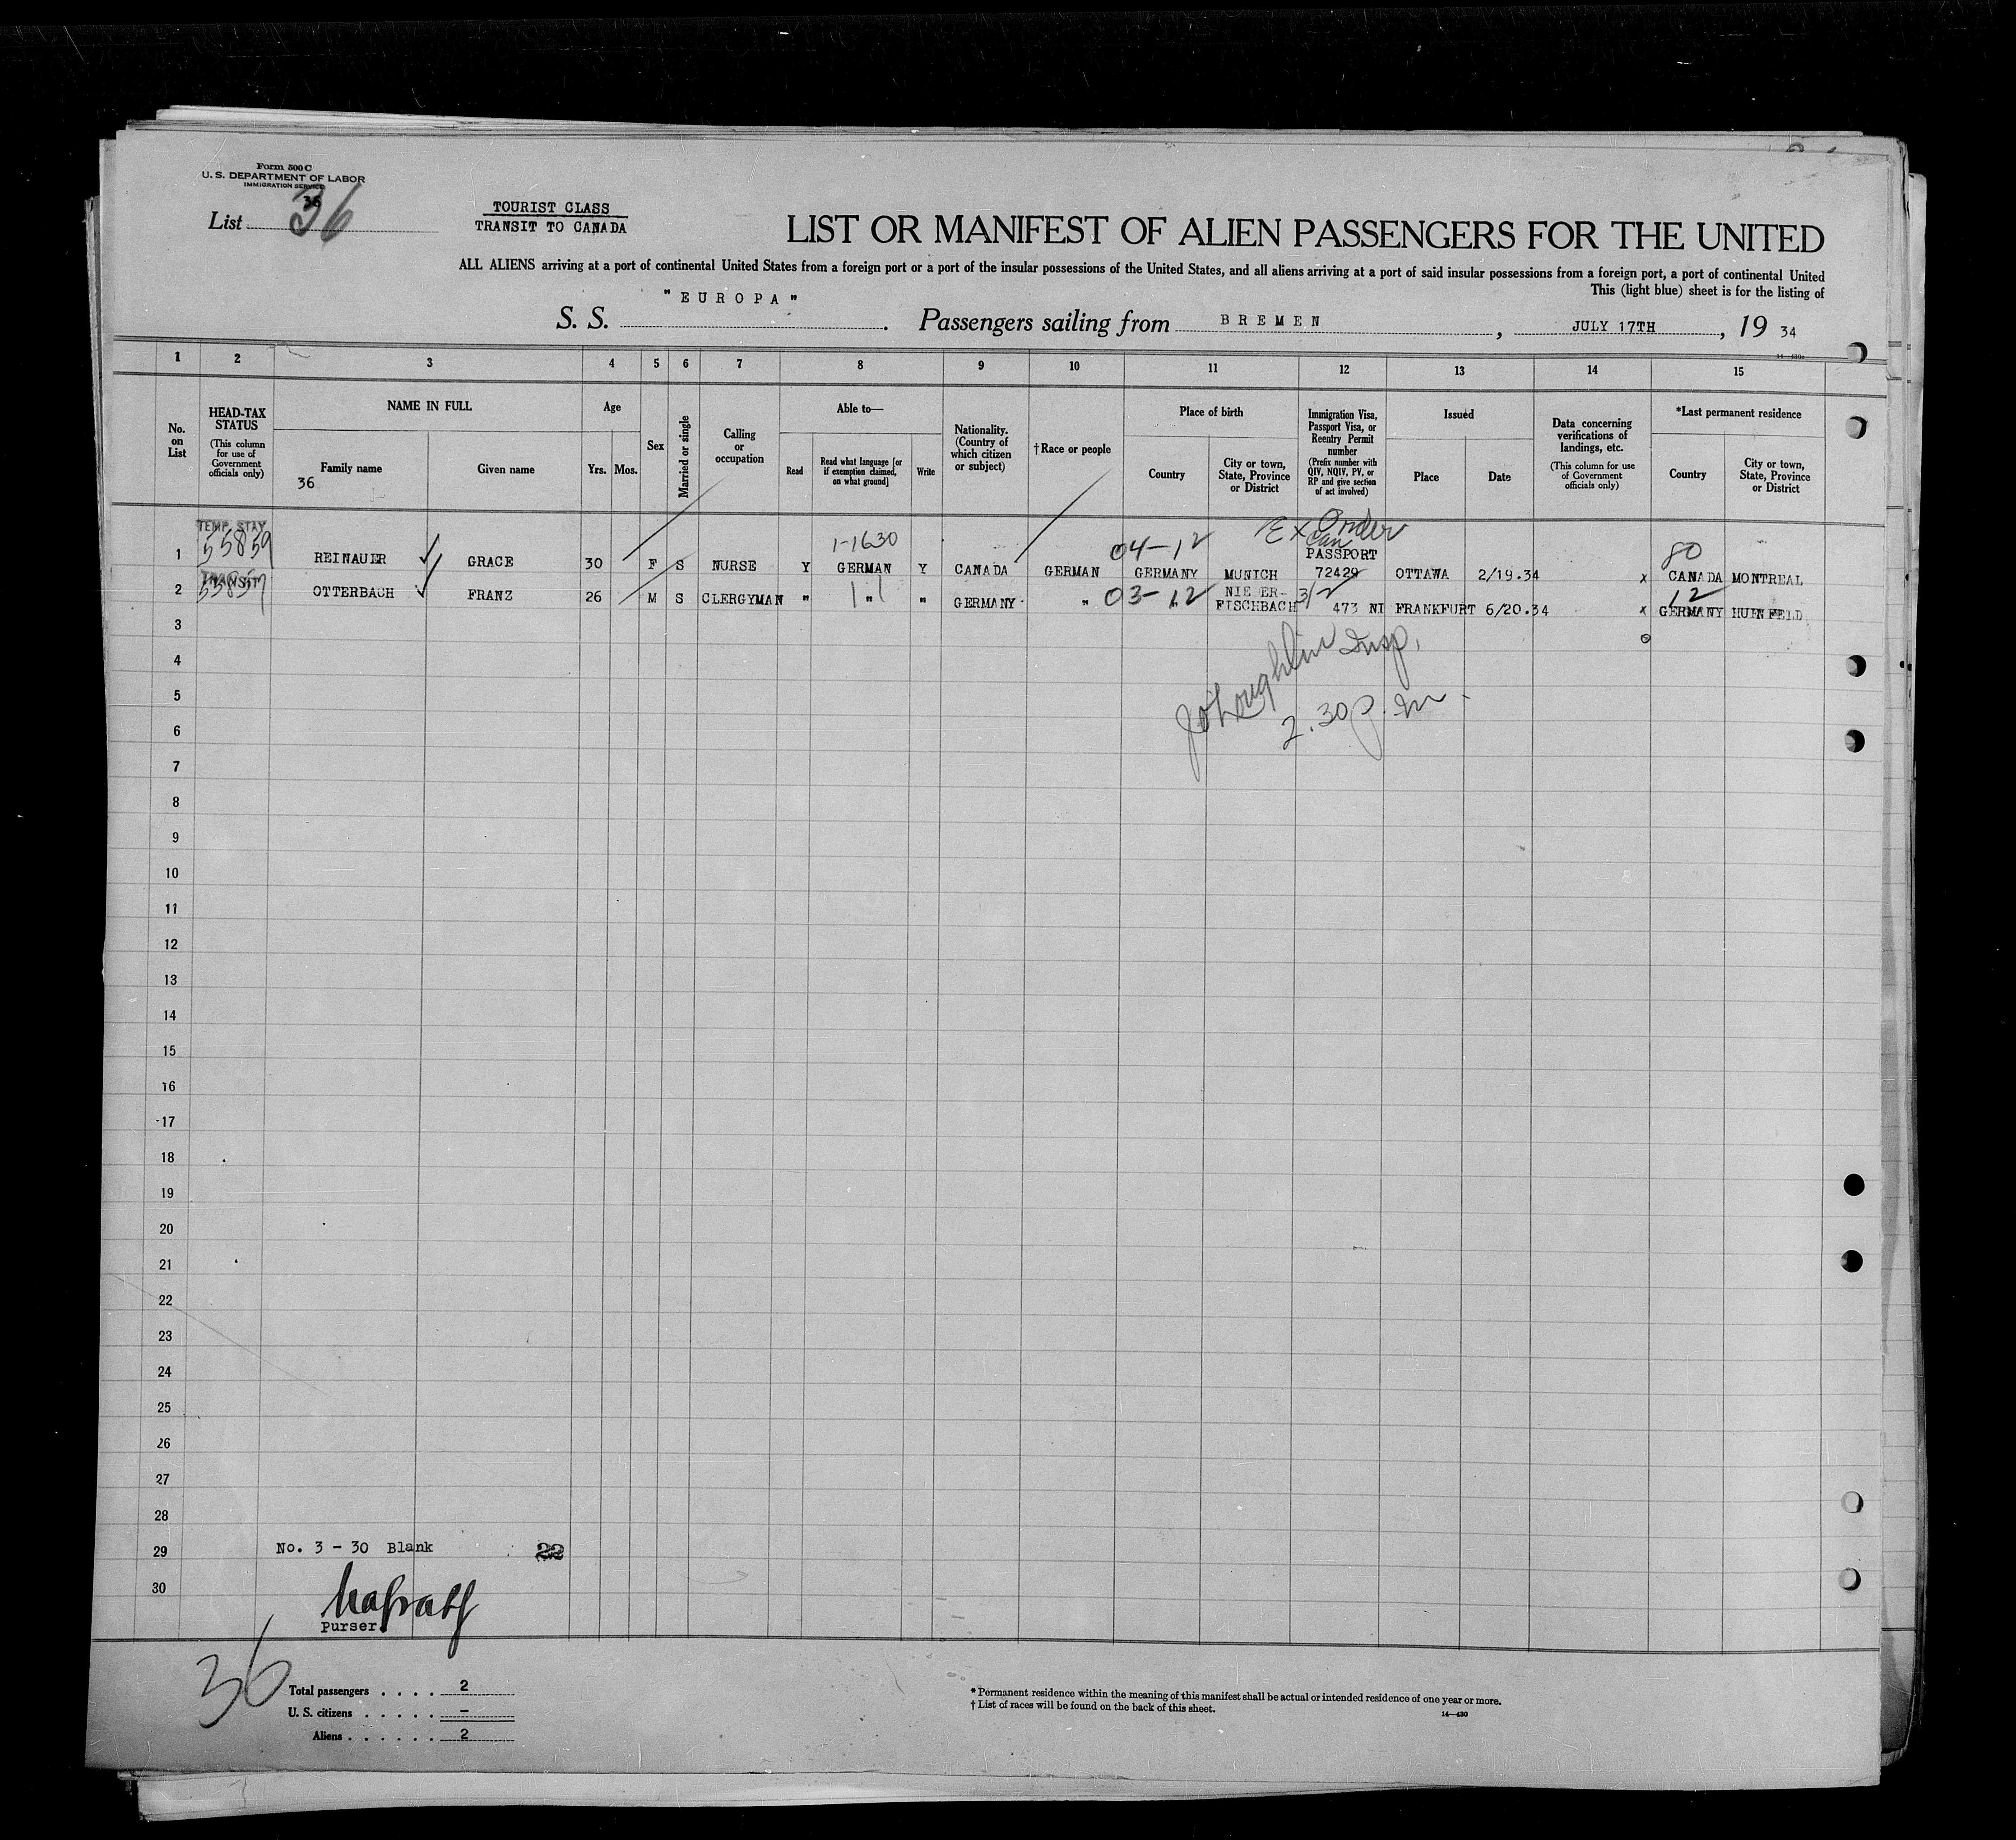 Form 500 C
U. S. DEPARTMENT OF LABOR
IMMIGRATION SERVICE
36
List 36
TOURIST CLASS
TRANSIT TO CANADA
LIST OR MANIFEST OF ALIEN PASSENGERS FOR THE UNITED
ALL ALIENS arriving at a port of continental United States from a foreign port or a port of the insular possessions of the United States, and all aliens arriving at a port of said insular possessions from a foreign port, a port of continental United
This (light blue) sheet is for the listing of
S. S. "EUROPA". Passengers sailing from BREMEN, JULY 17TH, 19 34
14—430a
1 2 3 4 5 6 7 8 9 10 11 12 13 14 15
No. on List
HEAD-TAX STATUS
(This column for use of Government officials only)
NAME IN FULL
Family name
36
Given name
Age
Yrs. Mos.
Sex
Married or single
Calling or occupation
Able to—
Read
Read what language [or if exemption claimed, on what ground]
Write
Nationality. (Country of which citizen or subject)
†Race or people
Place of birth
Country
City or town, State, Province or District
Immigration Visa, Passport Visa, or Reentry Permit number
(Prefix number with QIV, NQIV, PV, or RP and give section of act involved)
Issued
Place
Date
Data concerning verifications of landings, etc.
(This column for use of Government officials only)
*Last permanent residence
Country
City or town, State, Province or District
TEMP. STAY 1-1630 04-12 Ex Order Can PASSPORT 80
1 55859 REINAUER GRACE 30 F S NURSE Y GERMAN Y CANADA GERMAN GERMANY MUNICH 72429 OTTAWA 2/19.34 x CANADA MONTREAL
TRANSIT 03-12 NIEDER- 3/2 12
2 OTTERBACH FRANZ 26 M S CLERGYMAN " " " GERMANY " FISCHBACH 473 NI FRANKFURT 6/20.34 x GERMANY HUINFELD
3
4
5
Insp.
2.30 p.m.
6
7
8
9
10
11
12
13
14
15
16
17
18
19
20
21
22
23
24
25
26
27
28
29 No. 3 - 30 Blank 22
30
Purser.
36
Total passengers . . . . 2
U. S. citizens . . . . . –
Aliens . . . . . . 2
* Permanent residence within the meaning of this manifest shall be actual or intended residence of one year or more.
† List of races will be found on the back of this sheet.
14—430